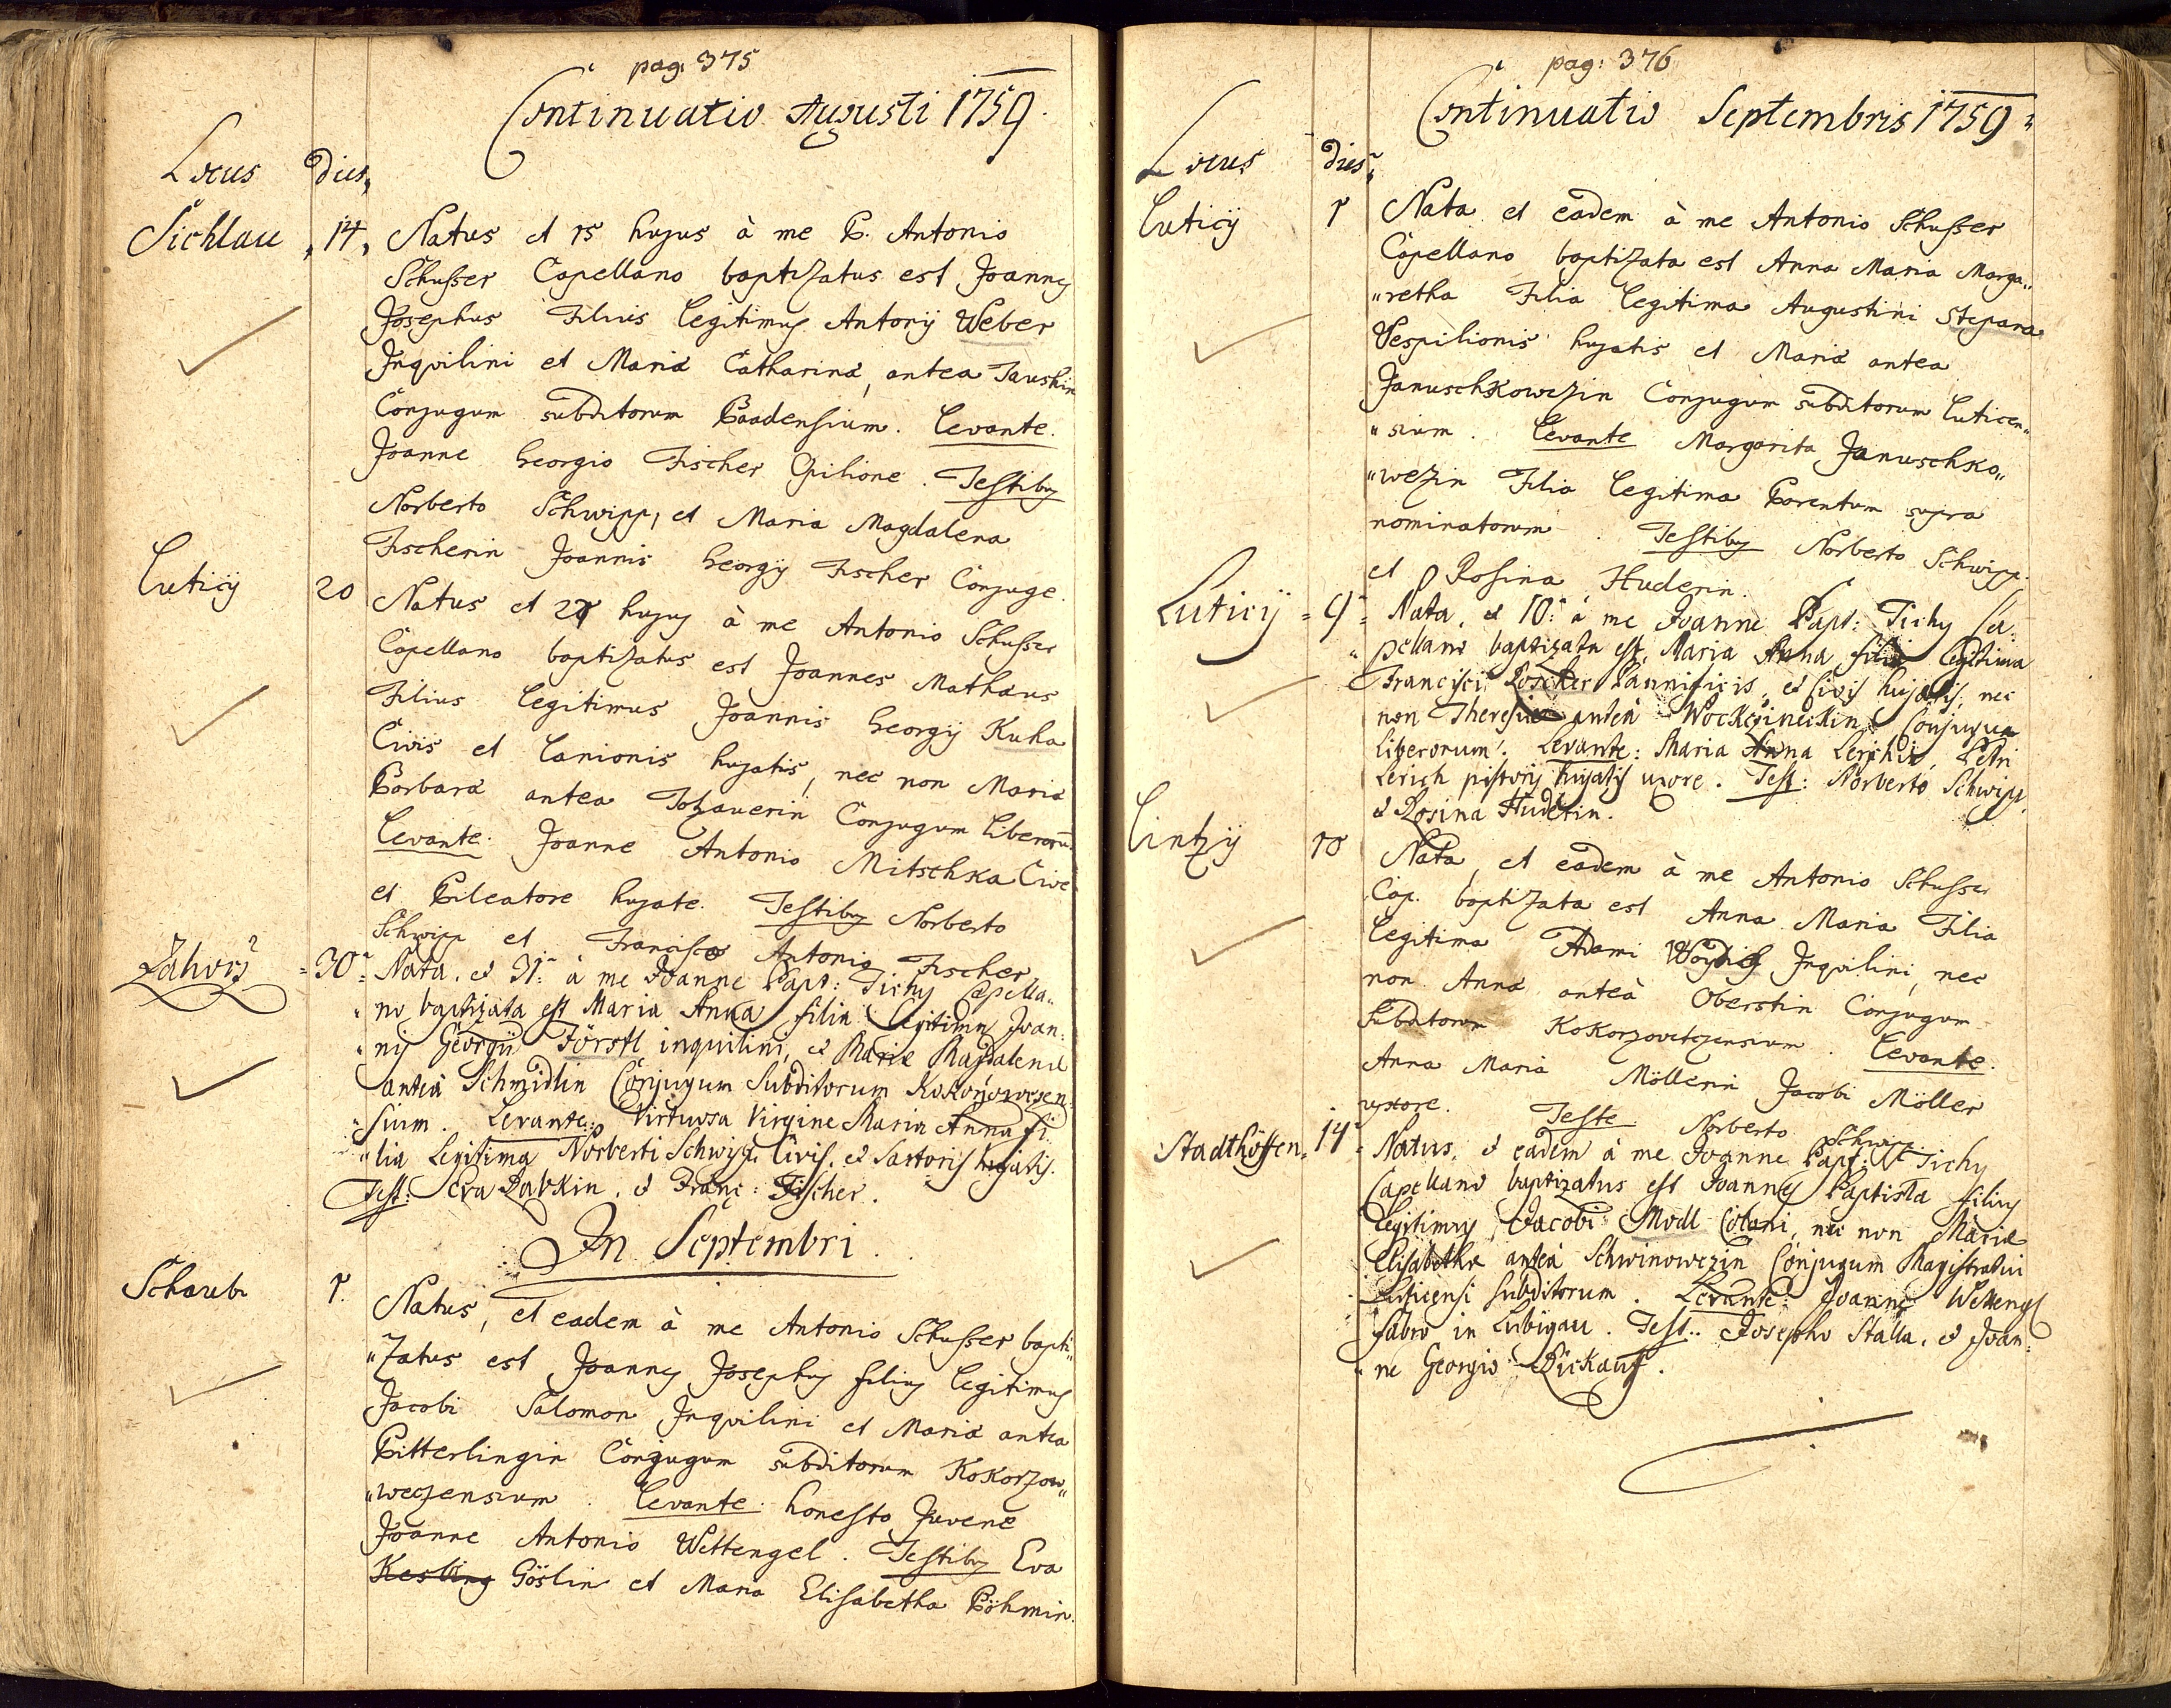 pag. 375
Continuatio Augusti 1759.
Locus dies,
Sichlau „14„ Natus et 15 hujus à me P. Antonio
Schusser Capellano baptizatus est Joannes
Josephus Filius legitimus Antonij Weber
Inquilini et Mariæ Catharinæ, antea Taushin
Conjugum subditorum Baadensium. Levante.
Joanne Georgio Fischer Opilione. Testibus
Norberto Schwipp, et Maria Magdalena
Fischerin Joannis Georgij Fischer Conjuge.
Luticij 20 Natus et 21 hujus à me Antonio Schusser
Capellano baptizatus est Joannes Mathæus
Filius legitimus Joannis Georgij Kuha
Civis et Lanionis hujatis, nec non Mariæ
Barbaræ antea Tohauerin Conjugum liberorum
Levante: Joanne Antonio Mitschka Cive
et Pileatore hujate. Testibus Norberto
Schwipp et Francisco Antonio Fischer
Zahorz =30= Nata, et 31: à me Joanne Bapt: Tichy Capella„
„no baptizata est Maria Anna filia legitima Joan„
„nis Georgii Förstl inquilini, et Mariæ Magdalenæ
anteà Schmidlin Conjugum Subditorum Kokorzowcen„
„sium. Levante: Virtuosa Virgine Maria Anna fi„
„lia Legitima Norberti Schwipp Civis, et Sartoris hujatis.
Test: Eva Rabkin, et Franc: Fischer.
In Septembri.
Schaub 1. Natus, et eadem à me Antonio Schusser bapti„
„zatus est Joannes Josephus filius legitimus
Jacobi Salomon Inquilini et Mariæ antea
Bitterlingin Conjugum subditorum Kokorzow„
„weczensium. Levante. honesto Juvene
Joanne Antonio Wettengel. Testibus Eva
Kesling Göslin et Maria Elisabetha Böhmin.
pag: 376
Continuatio Septembris 1759=
Locus dies„
Luticij 1 Nata et eadem à me Antonio Schusser
Capellano baptizata est Anna Maria Marga„
„retha Filia legitima Augustini Stepana
Vespilionis hujatis et Mariæ antea
Januschkowezin Conjugum subditorum Luticen„
„sium. Levante Margarita Januschko„
„wezin Filia legitima Parentum supra
nominatorum. Testibus Norberto Schwipp.
et Rosina Huderin.
Luticij =9= Nata, et 10: à me Joanne Bapt: Tichy Ca„
„pellano baptizata est, Maria Anna filia Legitima
Francisci Roscher Pannificis, et Civis hujatis, nec
non Theresiæ anteà Conjugum
liberorum. Levante: Maria Anna Petri
Lerich pistoris hujatis uxore. Test: Norberto Schwipp,
et Rosina Huderin.
Lintzij 10 Nata, et eadem à me Antonio Schusser
Cap. baptizata est Anna Maria Filia
legitima Adami Inquilini, nec
non Annæ anteà Oberstin Conjugum
subditorum Kokorzovetzensium. Levante.
Anna Maria Möllerin Jacobi Möller
uxore. Teste Norberto Schwipp
Stadthöffen =14= Natus, et eadem à me Joanne Bapt: Tichy
Capellano baptizatus est Joannes Baptista filius
legitimus Jacobi Modl Coloni, nec non Mariæ
Elisabethæ anteà Schwinowezin Conjugum Magistratui
Luticensi Subditorum. Levante: Joanne Wettengl
fabro in Libigau. Test: Josepho Stalla, et Joan„
„ne Georgio Pickauf.